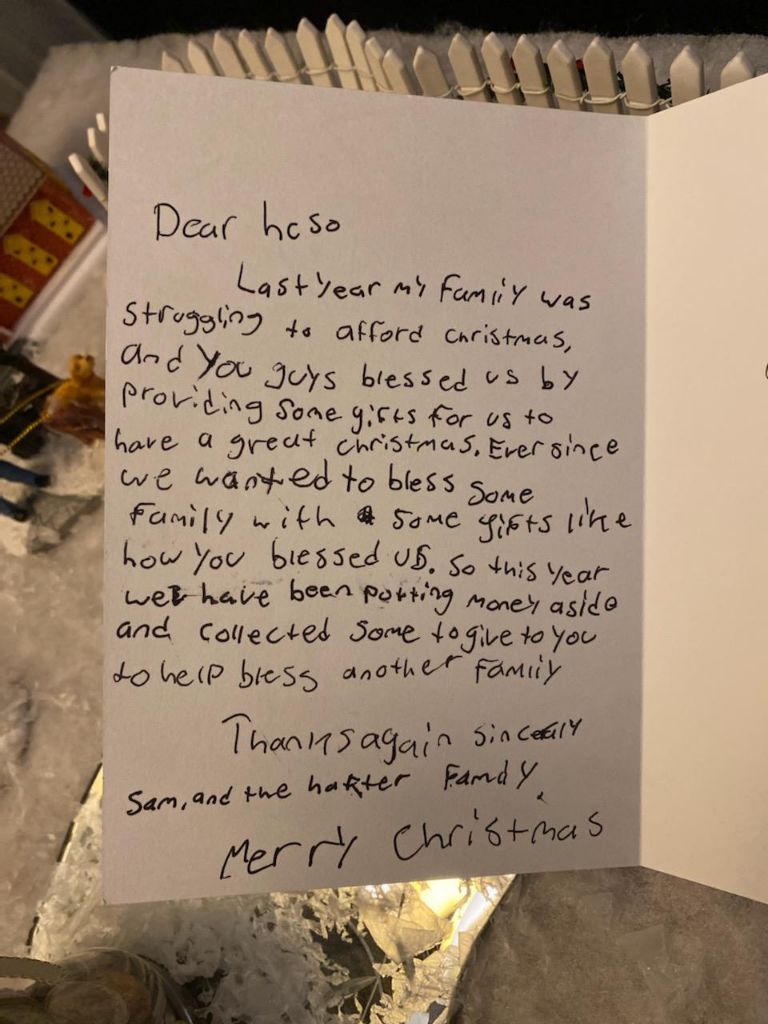 Dear hcso
Last year my Family was
struggling to afford christmas,
and you guys blessed us by
providing some gifts for us to
have a great christmas. Ever since
we wanted to bless some
Family with some gifts like
how you blessed us. So this year
we have been putting money aside
and collected some to give to you
to help bless another Family
Thanks again sincerly
Sam, and the harter Family.
Merry Christmas